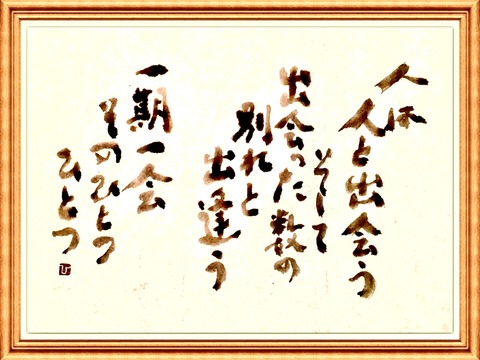 人は
人と出会う
そして
出会った数の
別れと
出逢う
一期一会
そのひとつ
ひとつ